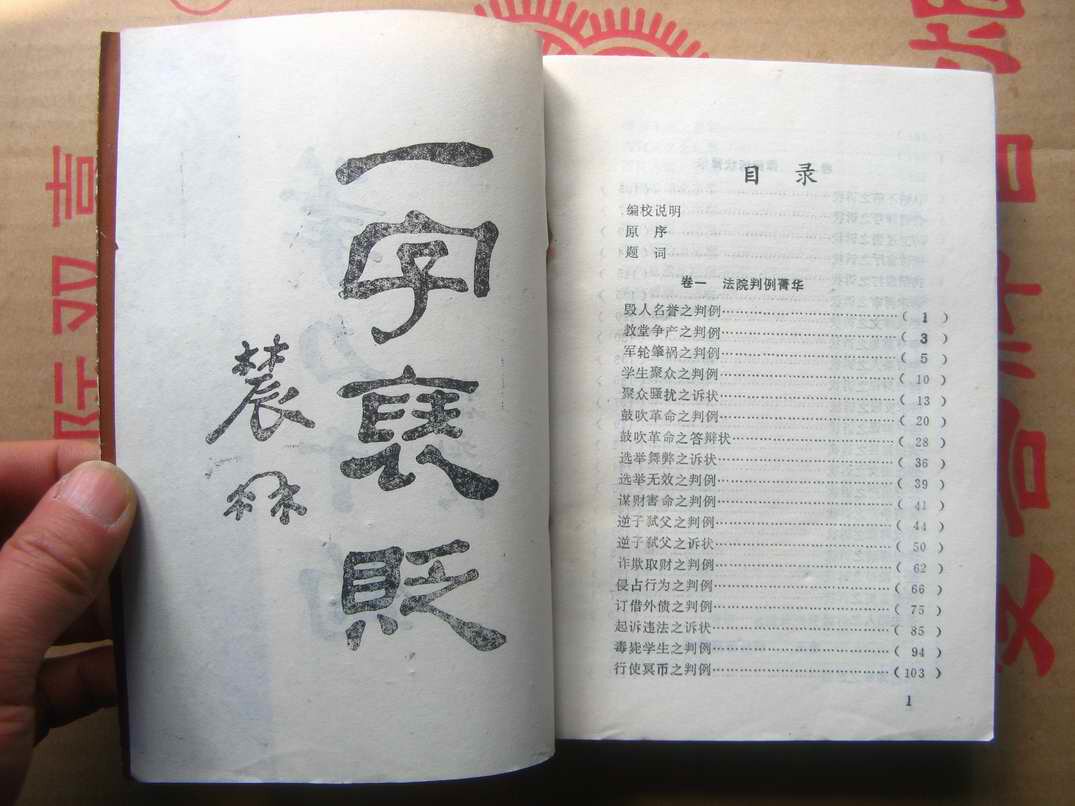 一字褒貶
目录
编校说明
原序
题词
卷一 法院判例菁华
毁人名誉之判例……………………( 1 )
教堂争产之判例……………………( 3 )
军轮肇祸之判例……………………( 5 )
学生聚众之判例……………………( 10 )
聚众骚扰之诉状……………………( 13 )
鼓吹革命之判例……………………( 20 )
鼓吹革命之答辩状…………………( 28 )
选举舞弊之诉状……………………( 36 )
选举无效之判例……………………( 39 )
谋财害命之判例……………………( 41 )
逆子弑父之判例……………………( 44 )
逆子弑父之诉状……………………( 50 )
诈欺取财之判例……………………( 62 )
侵占行为之判例……………………( 66 )
订借外债之判例……………………( 75 )
起诉违法之诉状……………………( 85 )
毒毙学生之判例……………………( 94 )
行使冥币之判例……………………( 103 )
1